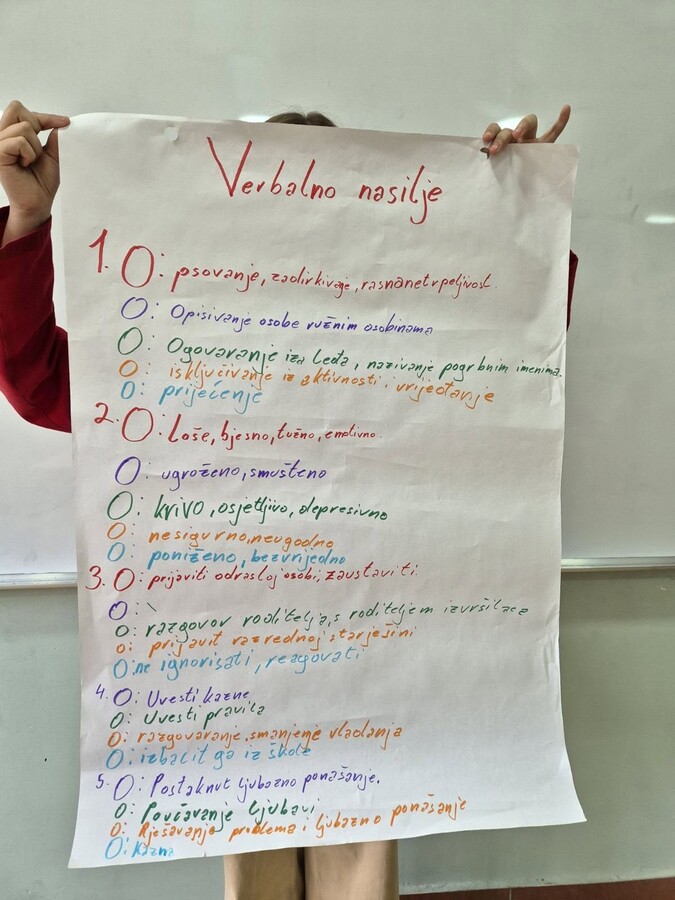 Verbalno nasilje
1. O: psovanje, zadirkivanje, rasnanetrpeljivost
O: Opisivanje osobe ružnim osobinama
O: Ogovaranje iza leđa, nazivanje pogrbnim imenima.
O: isključivanje iz aktivnosti, vrijeđanje
O: prijećenje
2. O: Loše, bjesno, tužno, emotivno
O: ugroženo, smušteno
O: krivo, osjetljivo, depresivno
O: nesigurno, neugodno
O: poniženo, bezvrijedno
3. O: prijaviti odrasloj osobi, zaustaviti
O: \
O: razgovor roditelja, s roditeljem izvršilaca
O: prijavit razrednoj starješini
O: ne ignorisati, reagovati
4. O: Uvesti kazne
O: Uvesti pravila
O: razgovaranje, smanjenje vladanja
O: izbacit ga iz škole
5. O: Postaknut ljubazno ponašanje.
O: Poučavanje ljubavi
O: Rješavanje problema i ljubazno ponašanje
O: Kazna